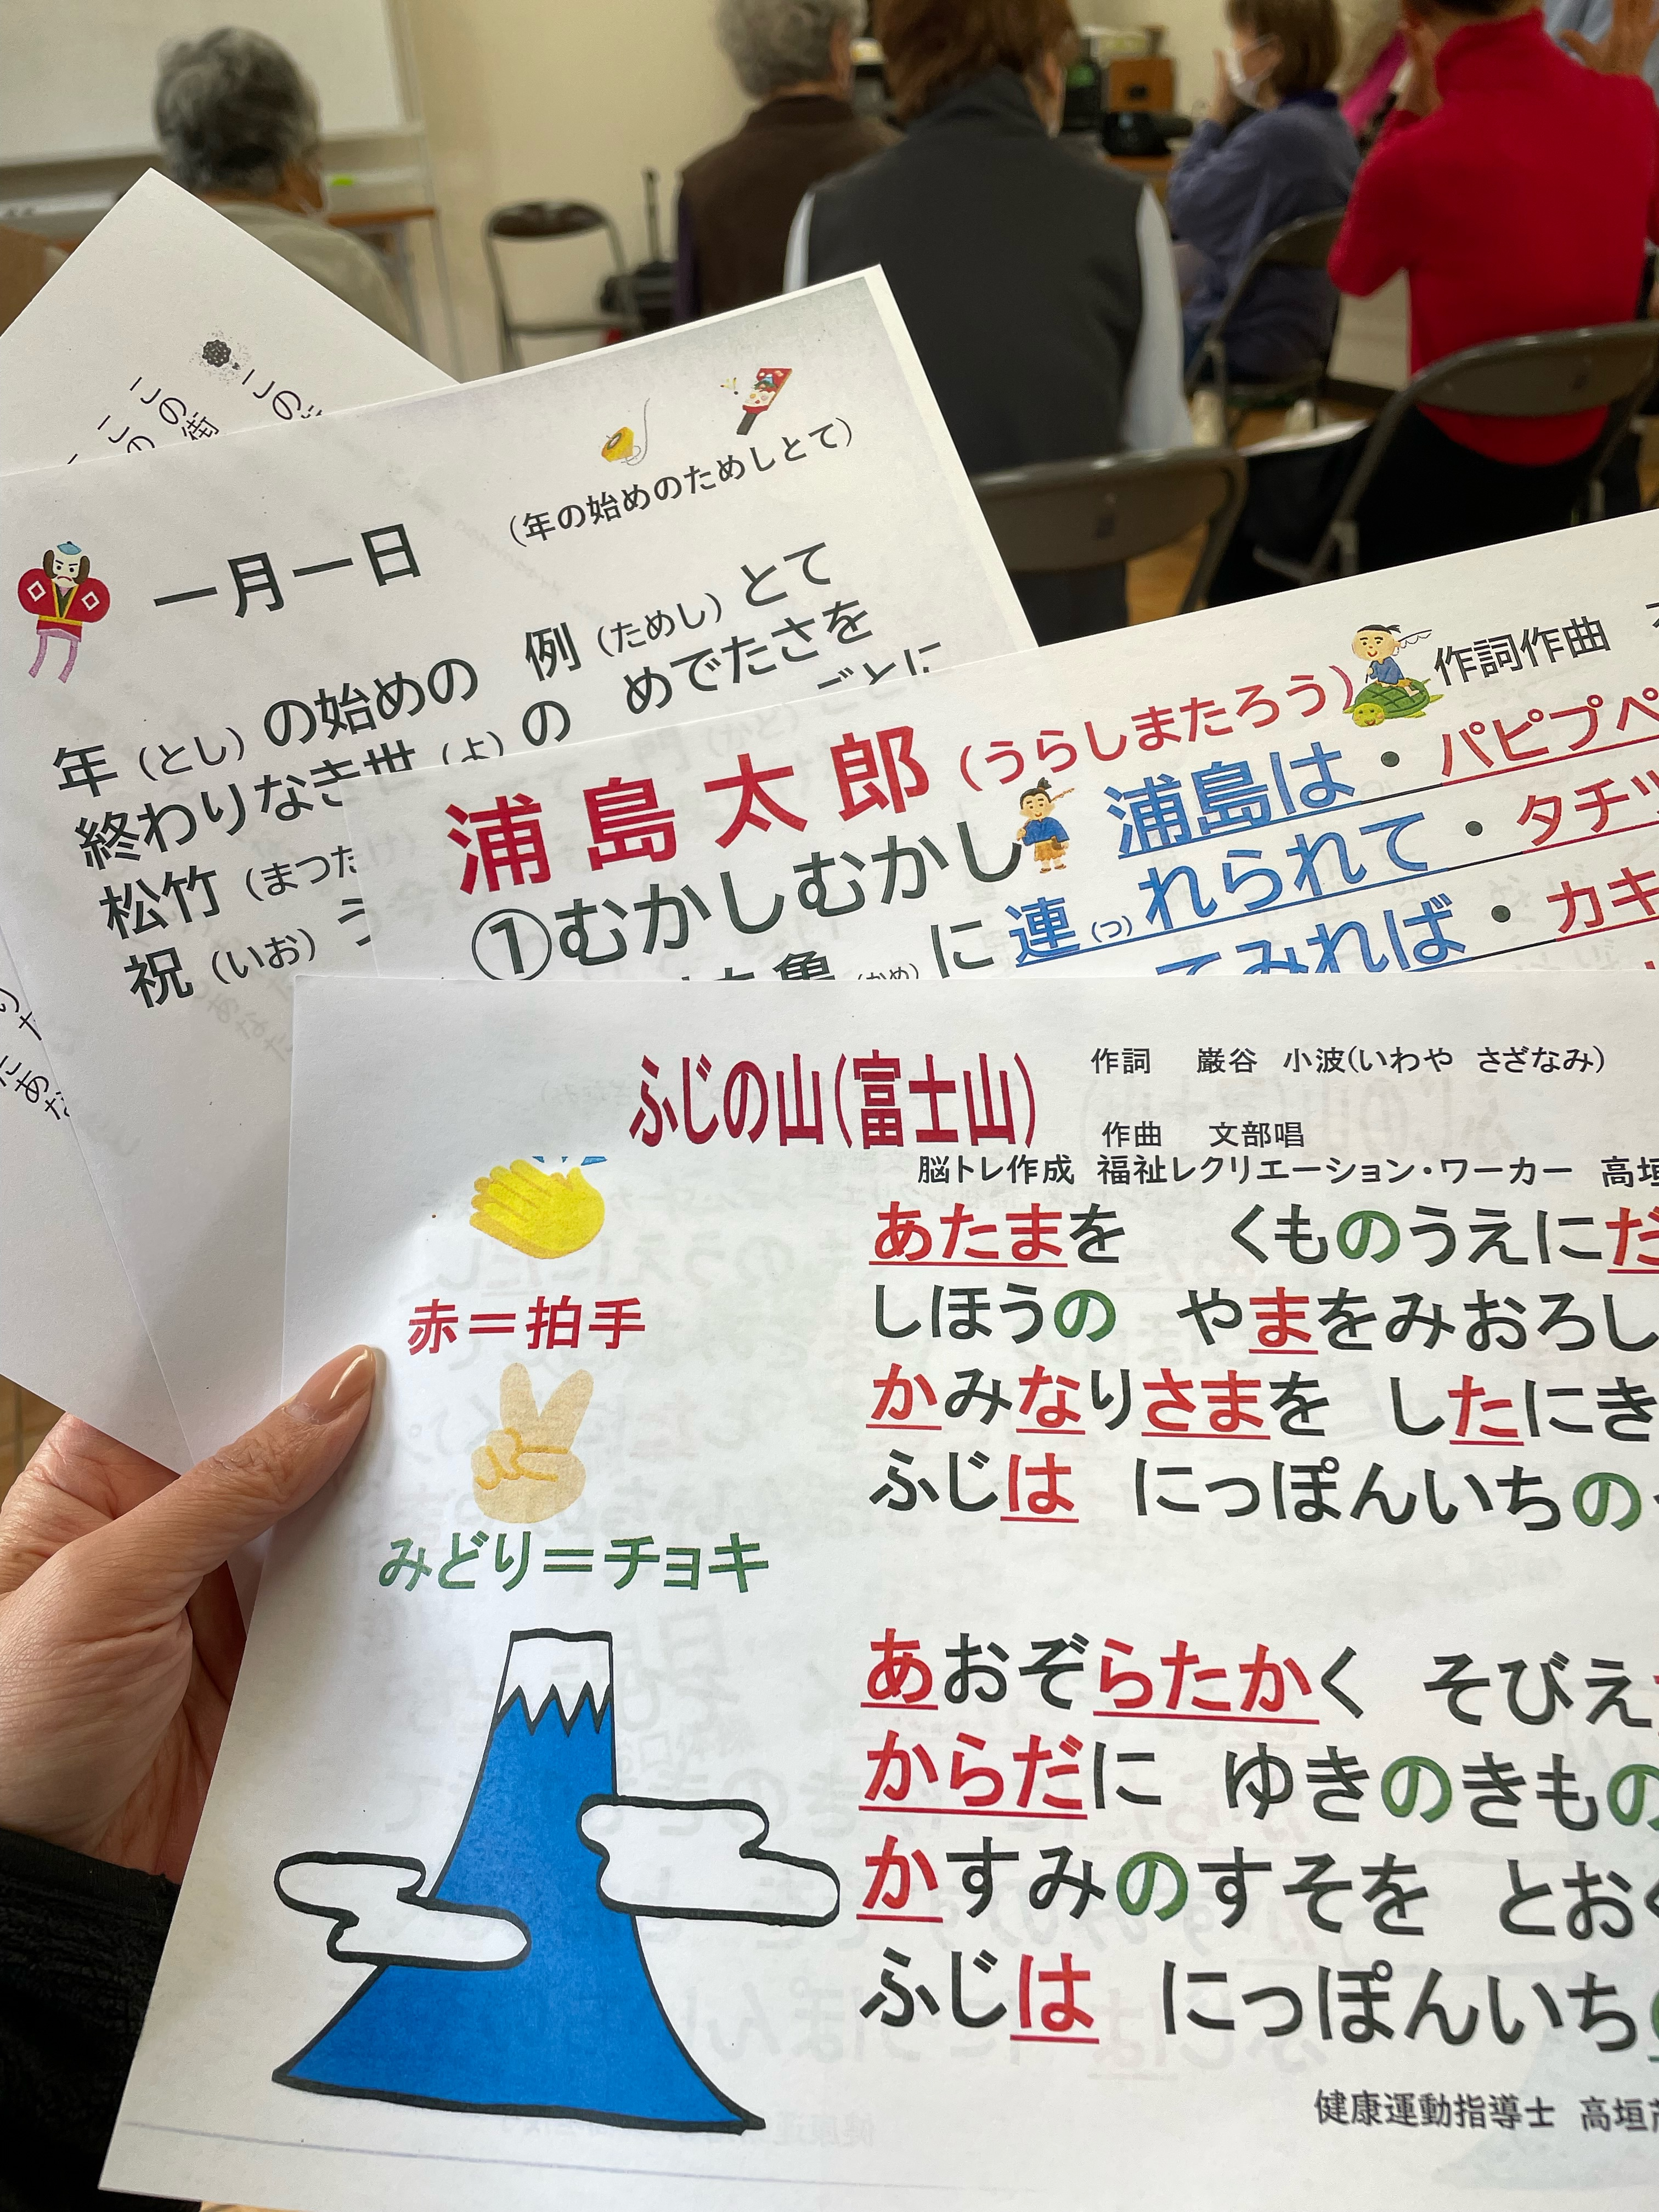 この
この街
この
一月一日
（年の始めのためしとて）
年（とし）の始めの 例（ためし）とて
終わりなき世（よ）の めでたさを
松竹（まつた
ごとに
祝（いお）う
浦島太郎（うらしまたろう）
作詞作曲
①むかしむかし 浦島は・パピプペ
亀（かめ）に 連（つ）れられて・タチツ
てみれば・カキ
ふじの山（富士山）
作詞 巌谷 小波（いわや さざなみ）
作曲 文部唱
脳トレ作成 福祉レクリエーション・ワーカー 高垣
赤＝拍手
みどり＝チョキ
あたまを くものうえにだ
しほうの やまをみおろし
かみなりさまを したにき
ふじは にっぽんいちの
あおぞらたかく そびえ
からだに ゆきのきもの
かすみのすそを とおく
ふじは にっぽんいち
健康運動指導士 高垣